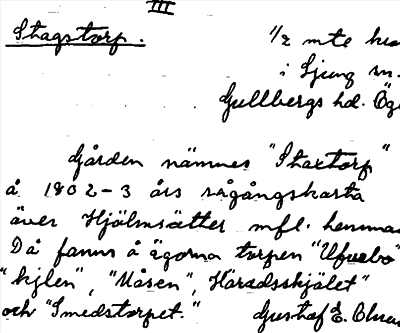 III
Stagstorp. 1/2 mtl
i Ljung sn.
Gullbergs hd. Ög
Gården nämnes "Staxtorp"
å 1802-3 års rågångskarta
över Hjälmsätter mfl. hemman
Då fanns å ägorna torpen
"kjlen", "Måsen", Häradsskjälet"
och "Smedstorpet." Gustaf E.